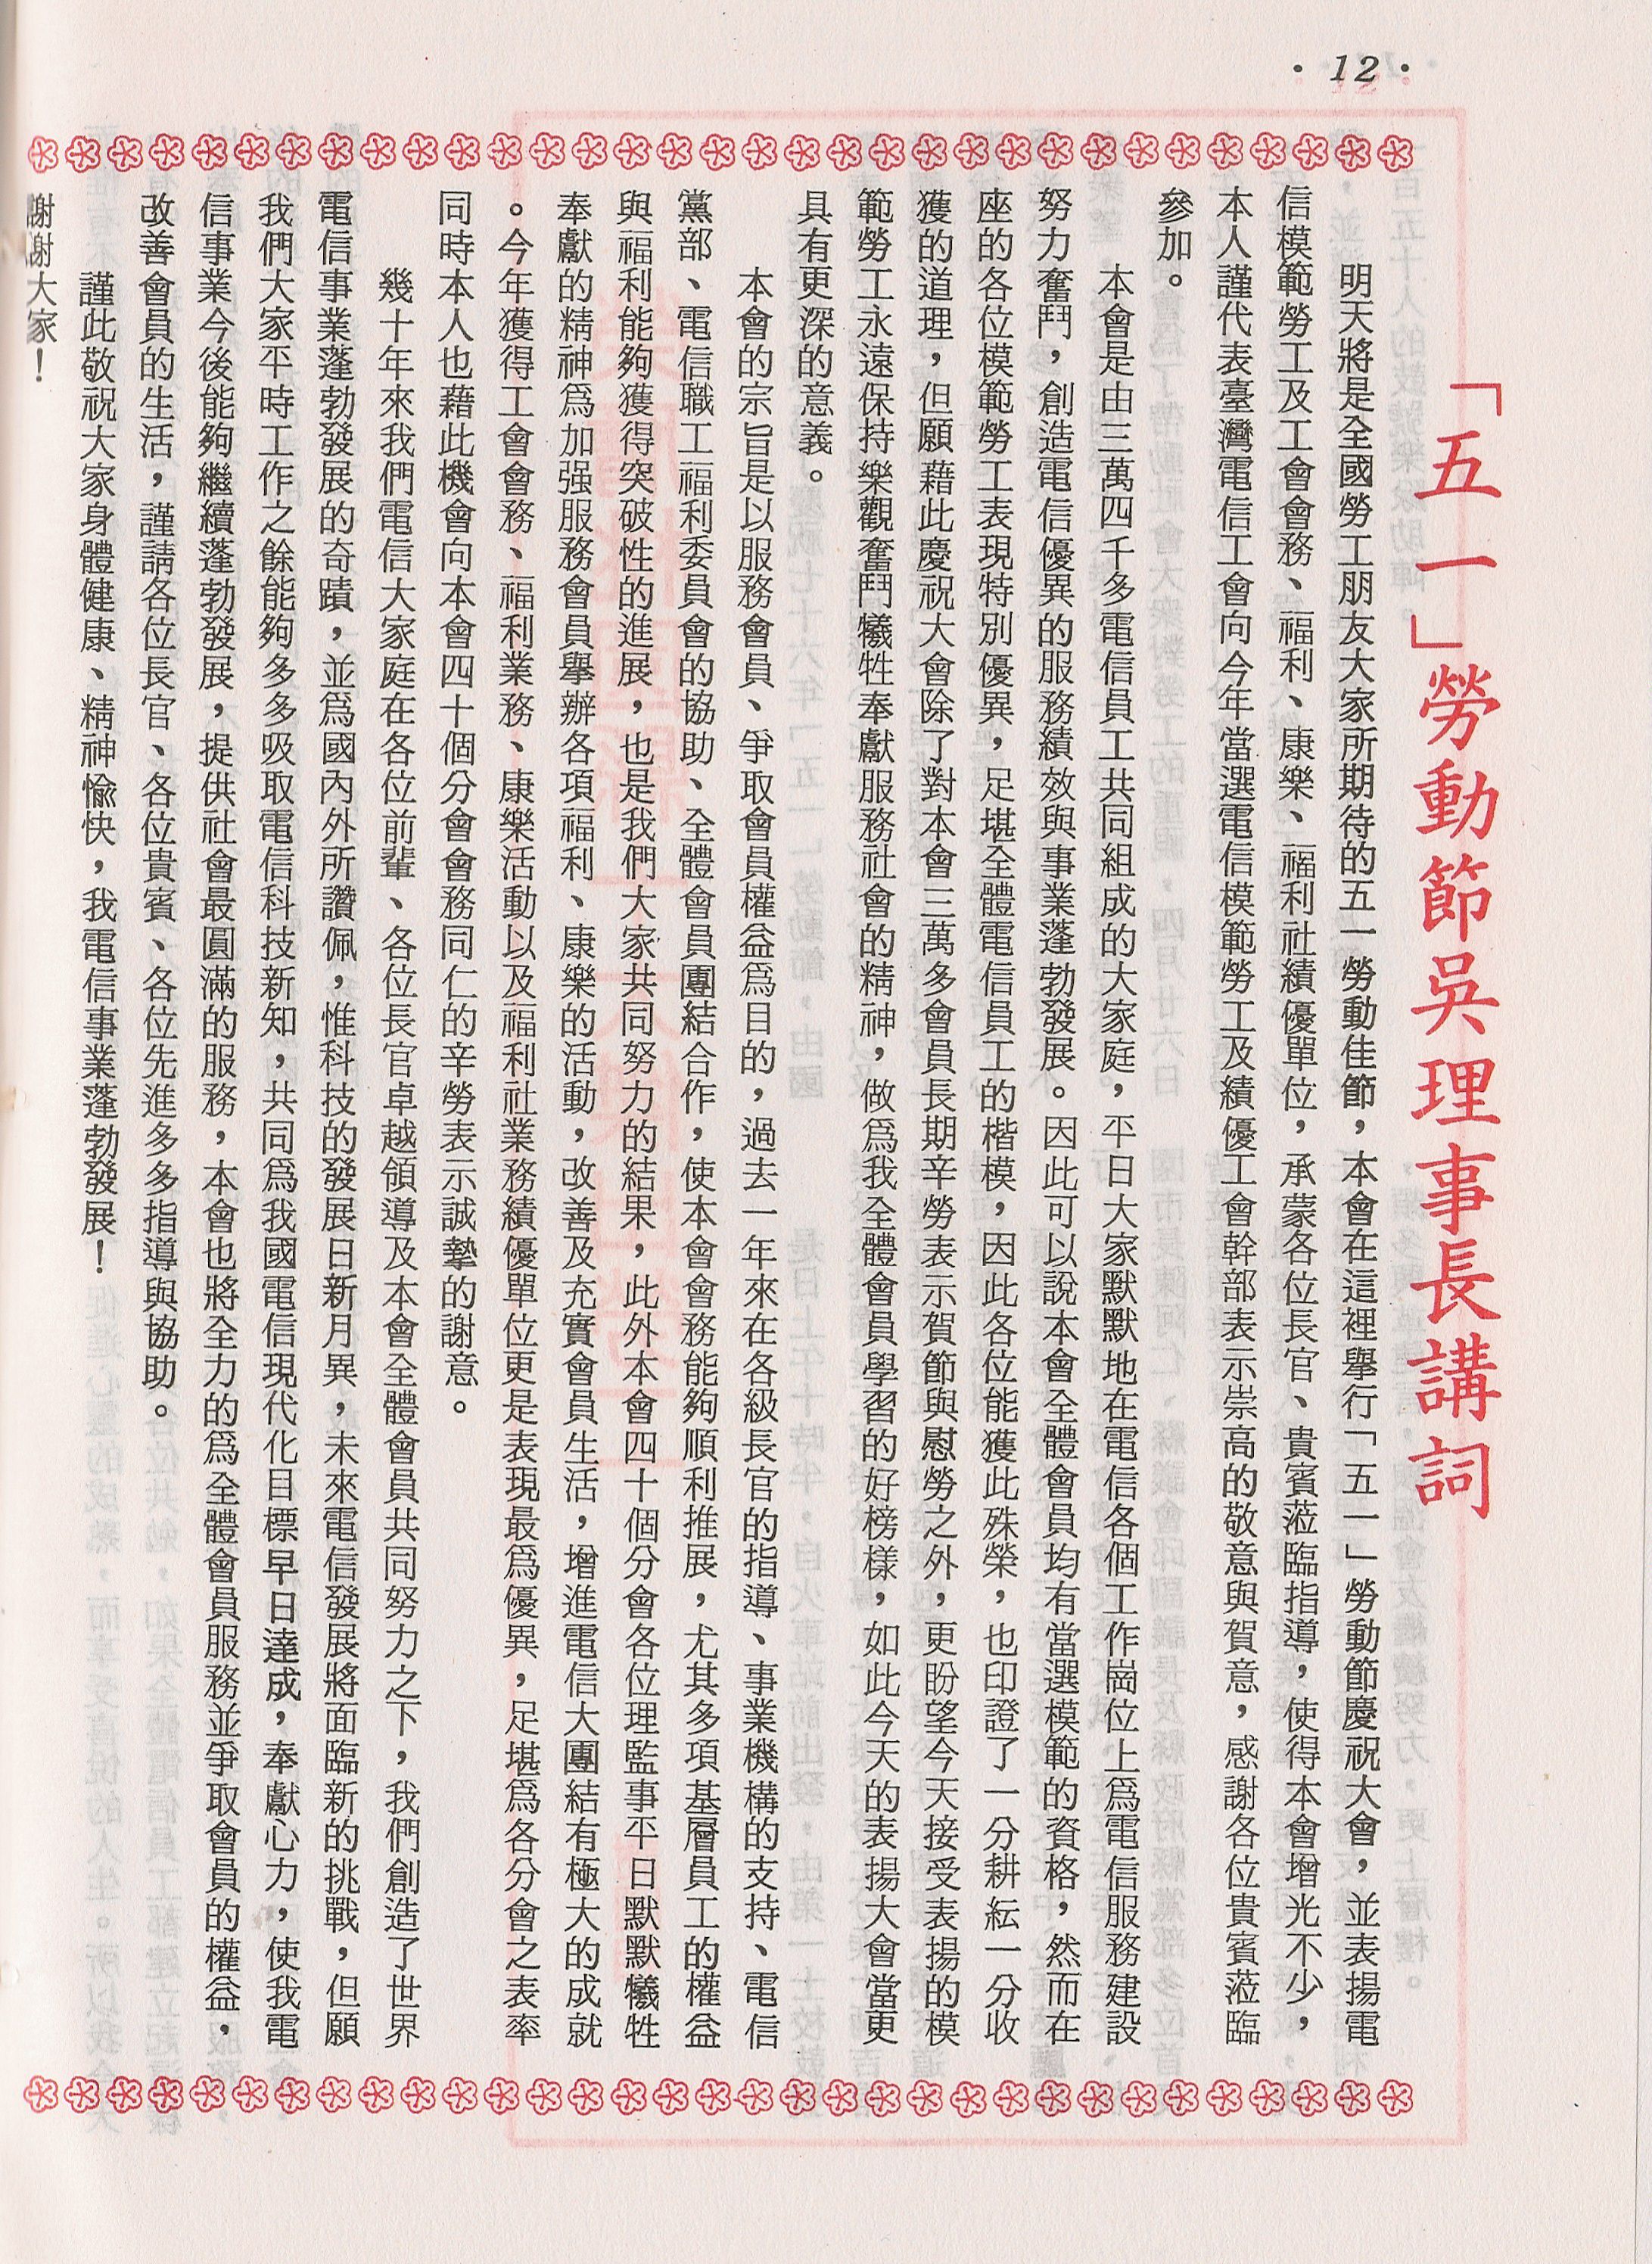 ·12·
「五一」勞動節吳理事長講詞
明天將是全國勞工朋友大家所期待的五一勞動佳節，本會在這裡舉行「五一」勞動節慶祝大會，並表揚電
信模範勞工及工會會務、福利、康樂、福利社績優單位，承蒙各位長官、貴賓蒞臨指導，使得本會增光不少，
本人謹代表臺灣電信工會向今年當選電信模範勞工及績優工會幹部表示崇高的敬意與賀意，感謝各位貴賓蒞臨
參加。
本會是由三萬四千多電信員工共同組成的大家庭，平日大家默默地在電信各個工作崗位上爲電信服務建設
努力奮鬥，創造電信優異的服務績效與事業蓬勃發展。因此可以說本會全體會員均有當選模範的資格，然而在
座的各位模範勞工表現特別優異，足堪全體電信員工的楷模，因此各位能獲此殊榮，也印證了一分耕耘一分收
獲的道理，但願藉此慶祝大會除了對本會三萬多會員長期辛勞表示賀節與慰勞之外，更盼望今天接受表揚的模
範勞工永遠保持樂觀奮鬥犧牲奉獻服務社會的精神，做爲我全體會員學習的好榜樣，如此今天的表揚大會當更
具有更深的意義。
本會的宗旨是以服務會員、爭取會員權益爲目的，過去一年來在各級長官的指導、事業機構的支持、電信
黨部、電信職工福利委員會的協助、全體會員團結合作，使本會會務能夠順利推展，尤其多項基層員工的權益
與福利能夠獲得突破性的進展，也是我們大家共同努力的結果，此外本會四十個分會各位理監事平日默默犧牲
奉獻的精神爲加强服務會員舉辦各項福利、康樂的活動，改善及充實會員生活，增進電信大團結有極大的成就
。今年獲得工會會務、福利業務、康樂活動以及福利社業務績優單位更是表現最爲優異，足堪爲各分會之表率
同時本人也藉此機會向本會四十個分會會務同仁的辛勞表示誠摯的謝意。
幾十年來我們電信大家庭在各位前輩、各位長官卓越領導及本會全體會員共同努力之下，我們創造了世界
電信事業蓬勃發展的奇蹟，並爲國內外所讚佩，惟科技的發展日新月異，未來電信發展將面臨新的挑戰，但願
我們大家平時工作之餘能夠多多吸取電信科技新知，共同爲我國電信現代化目標早日達成，奉獻心力，使我電
信事業今後能夠繼續蓬勃發展，提供社會最圓滿的服務，本會也將全力的爲全體會員服務並爭取會員的權益，
改善會員的生活，謹請各位長官、各位貴賓、各位先進多多指導與協助。
謹此敬祝大家身體健康、精神愉快，我電信事業蓬勃發展！
謝謝大家！